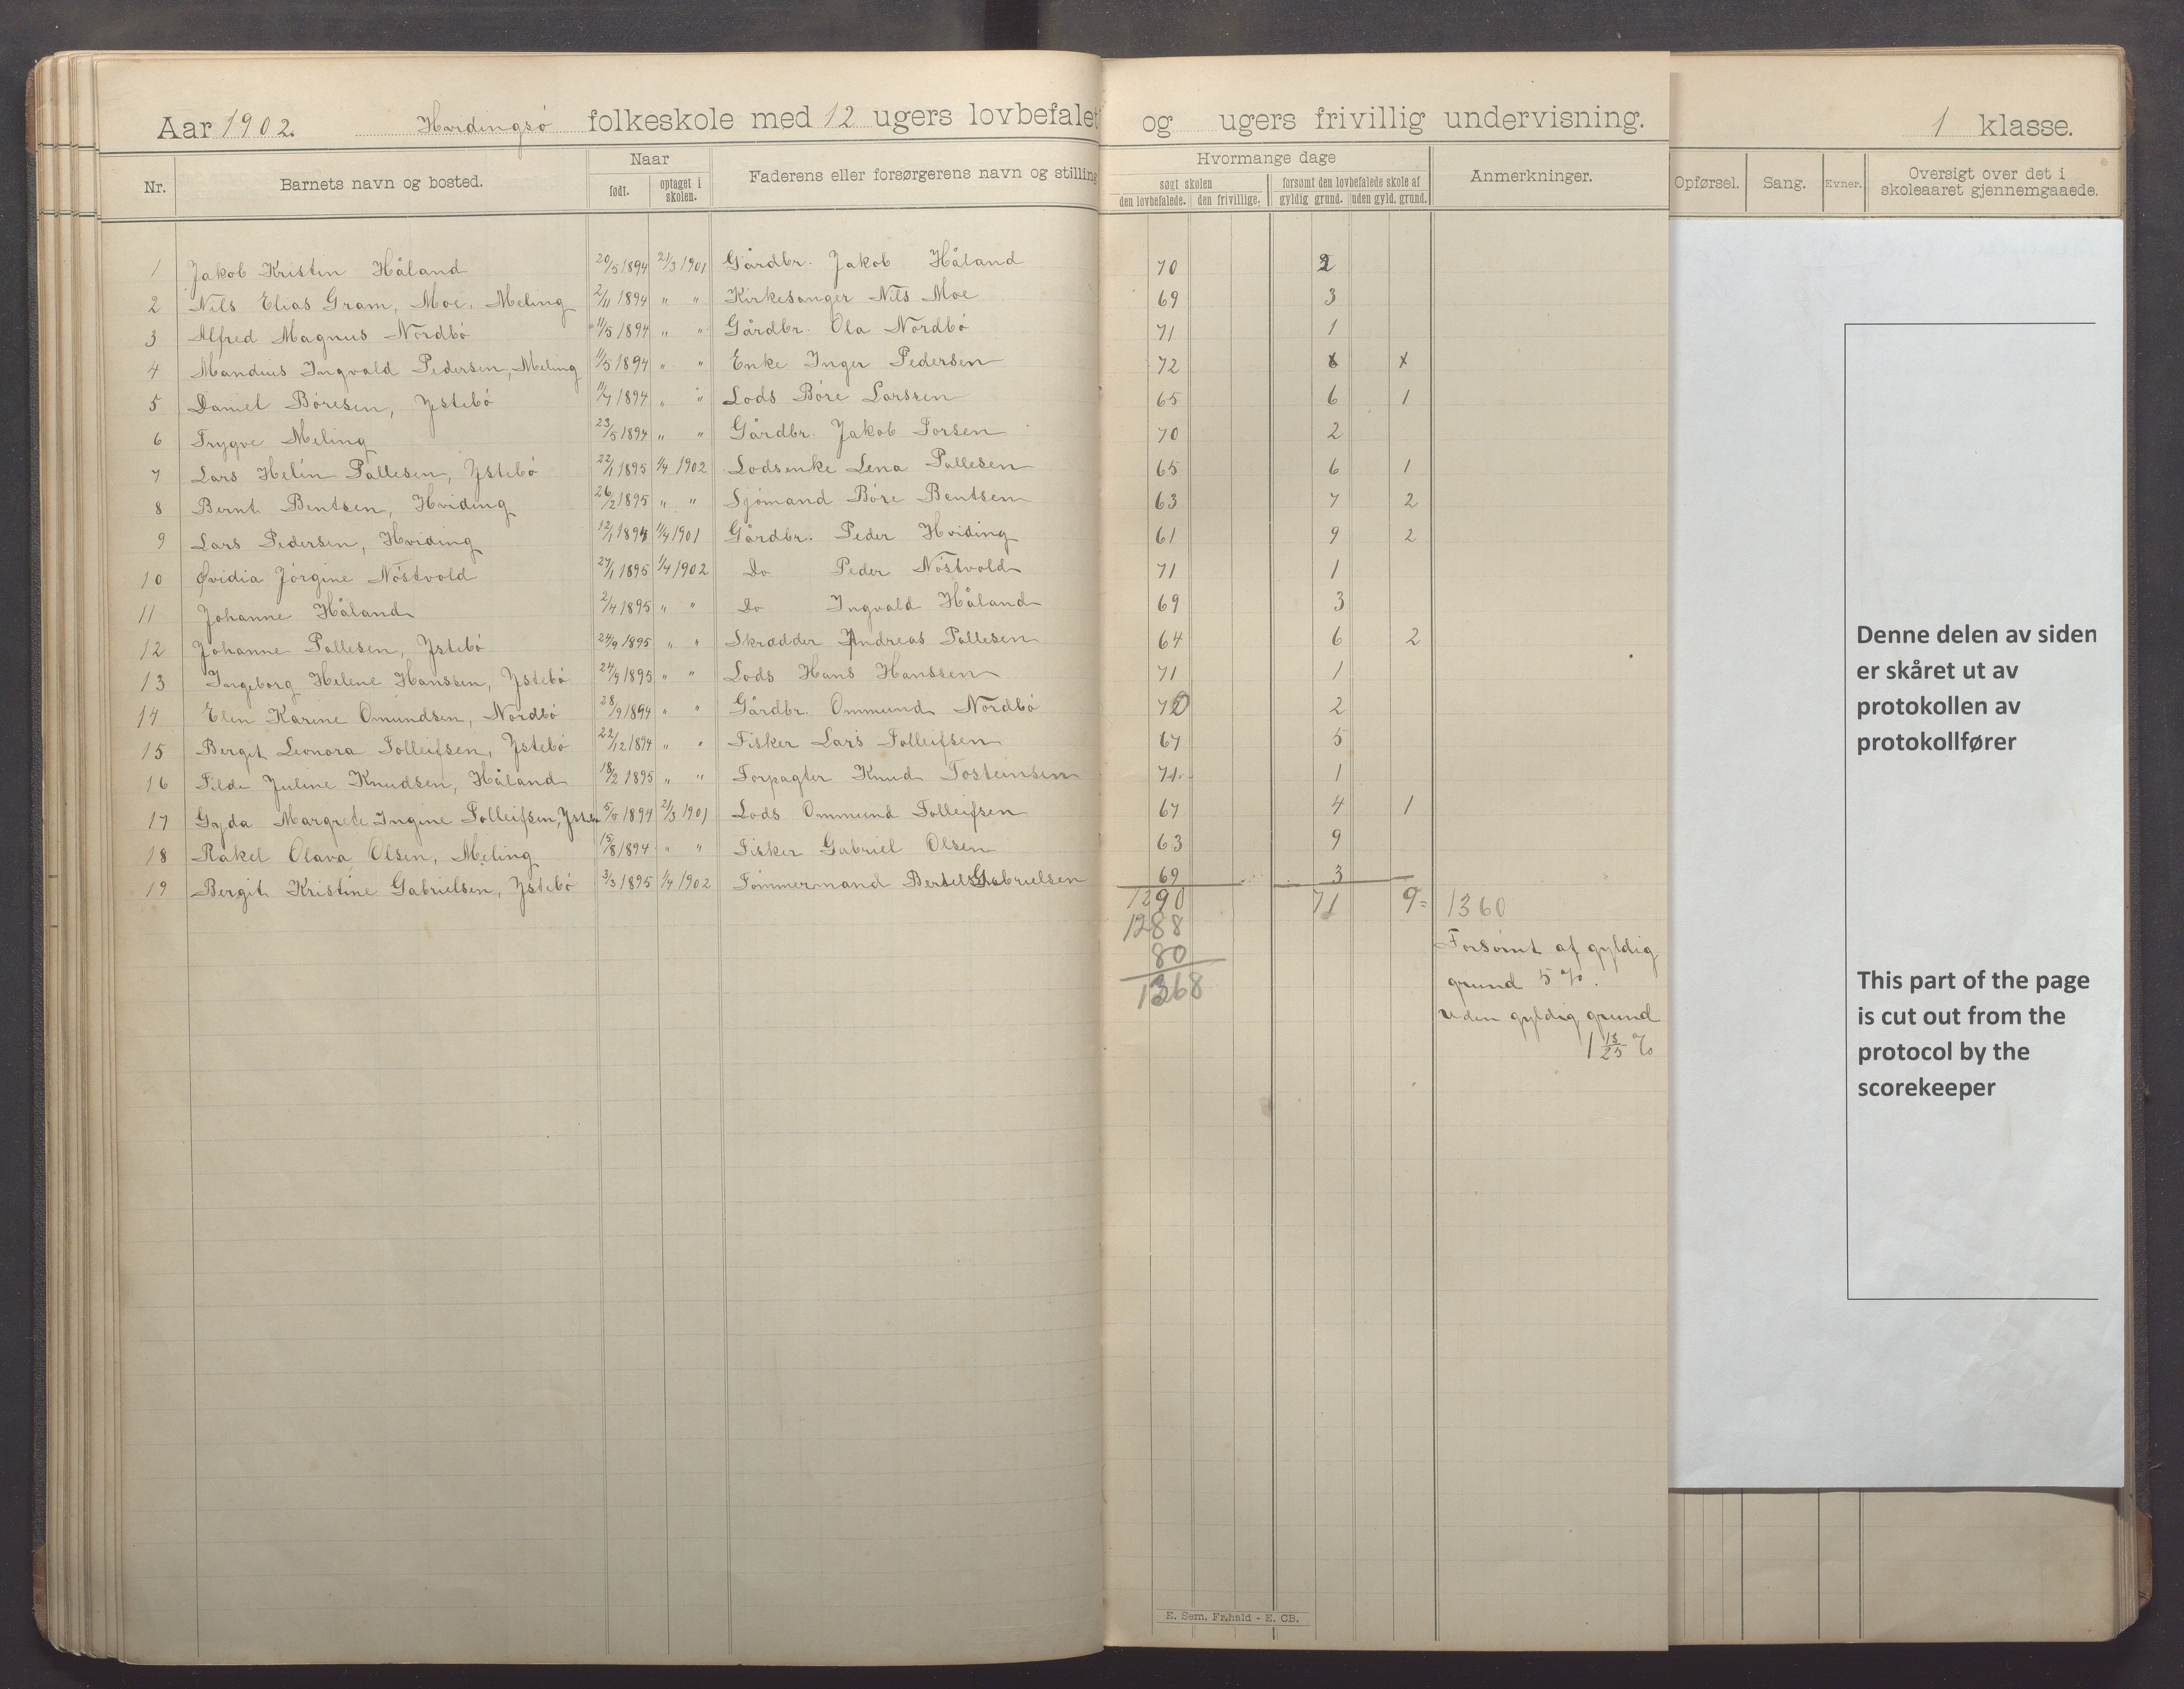 Aar 1902. Hvidingsö folkeskole med 12 ugers lovbefalet og ugers frivillig undervisning. 1 klasse.
Nr. Barnets navn og bosted. Naar født. optaget i skolen. Faderens eller forsørgerens navn og stilling Hvormange dage søgt skolen den lovbefalede. den frivillige. forsømt den lovbefalede skole af gyldig grund. uden gyld. grund. Anmerkninger. Opførsel. Sang. Evner. Oversigt over det i skoleaaret gjennemgaaede.
1 Jakob Kristin Håland 20/5 1894 21/3 1901 Gårdbr. Jakob Håland 70 2
2 Nils Elias Gram, Moe, Meling 2/11 1894 " " Kirkesanger Nils Moe 69 3
3 Alfred Magnus Nordbö 11/5 1894 " " Gårdbr. Ola Nordbö 71 1
4 Mandius Ingvald Pedersen, Meling 11/5 1894 " " Enke Inger Pedersen 72
5 Daniel Böresen, Ystebö 11/7 1894 " " Lods Böre Larssen 65 6 1
6 Trygve Meling 23/5 1894 " " Gårdbr. Jakob Torsen 70 2
7 Lars Helin Pallesen, Ystebö 22/1 1895 1/4 1902 Lodsenke Lena Pallesen 65 6 1
8 Bernt Bentsen, Hviding 26/2 1895 " " Sjömand Böre Bentsen 63 7 2
9 Lars Pedersen, Hviding 12/1 1894 11/4 1901 Gårdbr. Peder Hviding 61 9 2
10 Ovidia Jörgine Nöstvold 27/1 1895 1/4 1902 Do Peder Nöstvold 71 1
11 Johanne Håland 2/4 1895 " " Do Ingvald Håland 69 3
12 Johanne Pallesen, Ystebö 24/9 1895 " " Skrædder Andreas Pallesen 64 6 2
13 Ingeborg Helene Hanssen, Ystebö 24/9 1895 " " Lods Hans Hanssen 71 1
14 Elen Karine Omundsen, Nordbö 28/9 1894 " " Gårdbr. Ommund Nordbö 70 2
15 Bergit Leonora Tolleifsen, Ystebö 22/12 1894 " " Fisker Lars Tolleifsen 67 5
16 Tilda Juline Knudsen, Håland 18/2 1895 " " Forpagter Knud Tosteinsen 71 1
17 Gyda Margrete Ingine Tolleifsen, Ysteb 5/5 1894 21/3 1901 Lods Ommund Tolleifsen 67 4 1
18 Rakel Olava Olsen, Meling 15/8 1894 " " Fisker Gabriel Olsen 63 9
19 Bergit Kristine Gabrielsen, Ystebö 3/3 1895 1/4 1902 Tömmermand Bertel Gabrielsen 69 3
1290 71 9 = 1360
1288
80
1368
Forsömt af gyldig
grund 5 %.
Uden gyldig grund
1 13/25 %
Denne delen av siden
er skåret ut av
protokollen av
protokollfører
This part of the page
is cut out from the
protocol by the
scorekeeper
E. Sem, Fr.hald - E. CB.